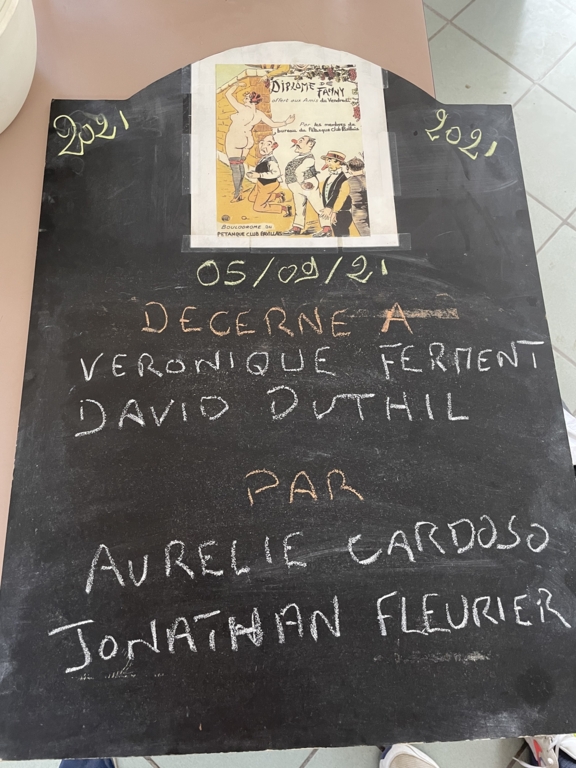 DIPLOME DE FANNY
offert aux Amis du Vendredi
Par les membres du
bureau du Pétanque Club
BOULODROME DU
PETANQUE CLUB
2021
2021
05/09/21
DECERNE A
VERONIQUE FERMENT
DAVID DUTHIL
PAR
AURELIE CARDOSO
JONATHAN FLEURIER